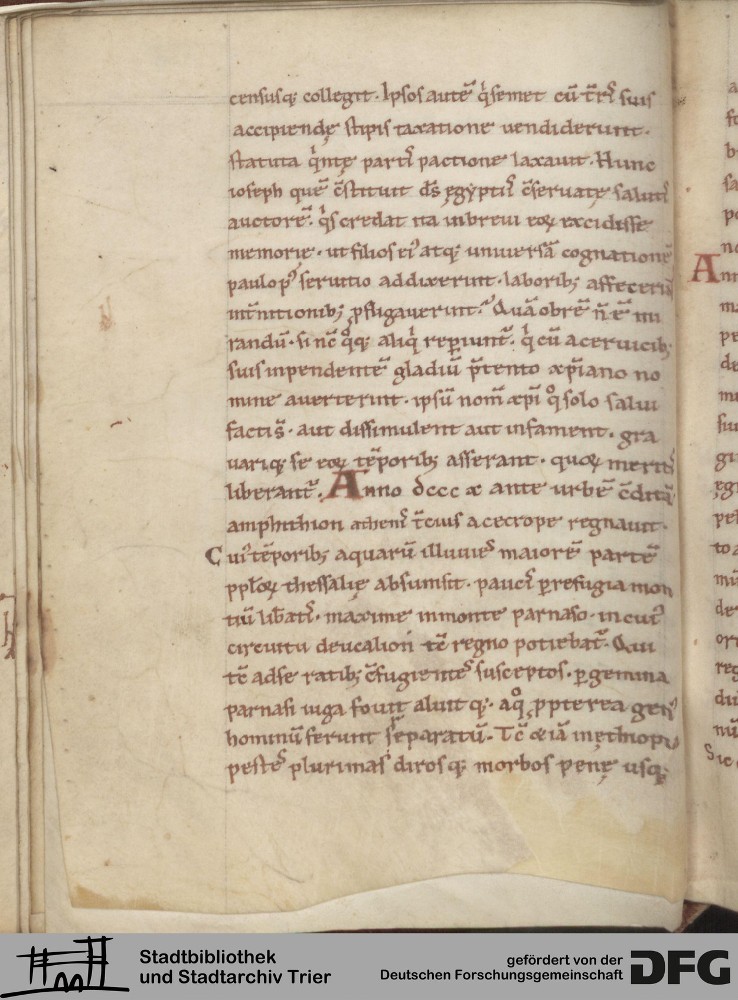 censusq; collegit. Ipsos autē qͥsemet cū t̄rıs suis
accipiendę stipis taxatione uendiderunt.
statuta qͥntę partıs pactione laxauit. Hunc
ioseph quē c̄stituit d̄s ęgẏptıs c̄seruatę salutıs
auctorē. qͥs credat ita inbreui eoꝝ excidisse
memorię. ut filios eiꝰ atq; uniuersā cognationē
paulopꝰ seruitio addixerint. laboribꝫ affecerīt
int̄nitionibꝫ ꝓfligauerint. Quā obrē n̄ ē mi
randū. si nc̄ qͦq; aliqͥ reꝑiunt̄. qͥ cū aceruicibꝫ
suis inpendentē gladiū p̄tento xp̄iano no
mine auerterint. ipsū nom̄ xp̄i qͦ solo salui
facti s̄. aut dissimulent aut infament. gra
uariq; se eoꝝ tēporibꝫ asserant. quoꝝ meritıs
liberant̄. Anno dccc x ante urbē c̄ditā.
amphithion athenıs t̄cius acecrope regnauit.
Cuiꝰ tēporibꝫ aquarū illuuies maiorē partē
ppl̄oꝝ thessalię absumsit. paucıs ꝑrefugia mon
tiū lib̄atıs. maxime inmonte parnaso. in cuiꝰ
circuitu deucalion tc̄ regno potiebat̄. Qui
tc̄ adse ratibꝫ c̄fugientes susceptos. ꝑ gemina
parnasi iuga fouit aluitq;. aqͦ ꝓpterea genꝰ
hominū ferunt reparatū. Tc̄ & iā inęthiopia
pestes plurimas dirosq; morbos penę usq;
Stadtbibliothek
und Stadtarchiv Trier
gefördert von der
Deutschen Forschungsgemeinschaft
DFG